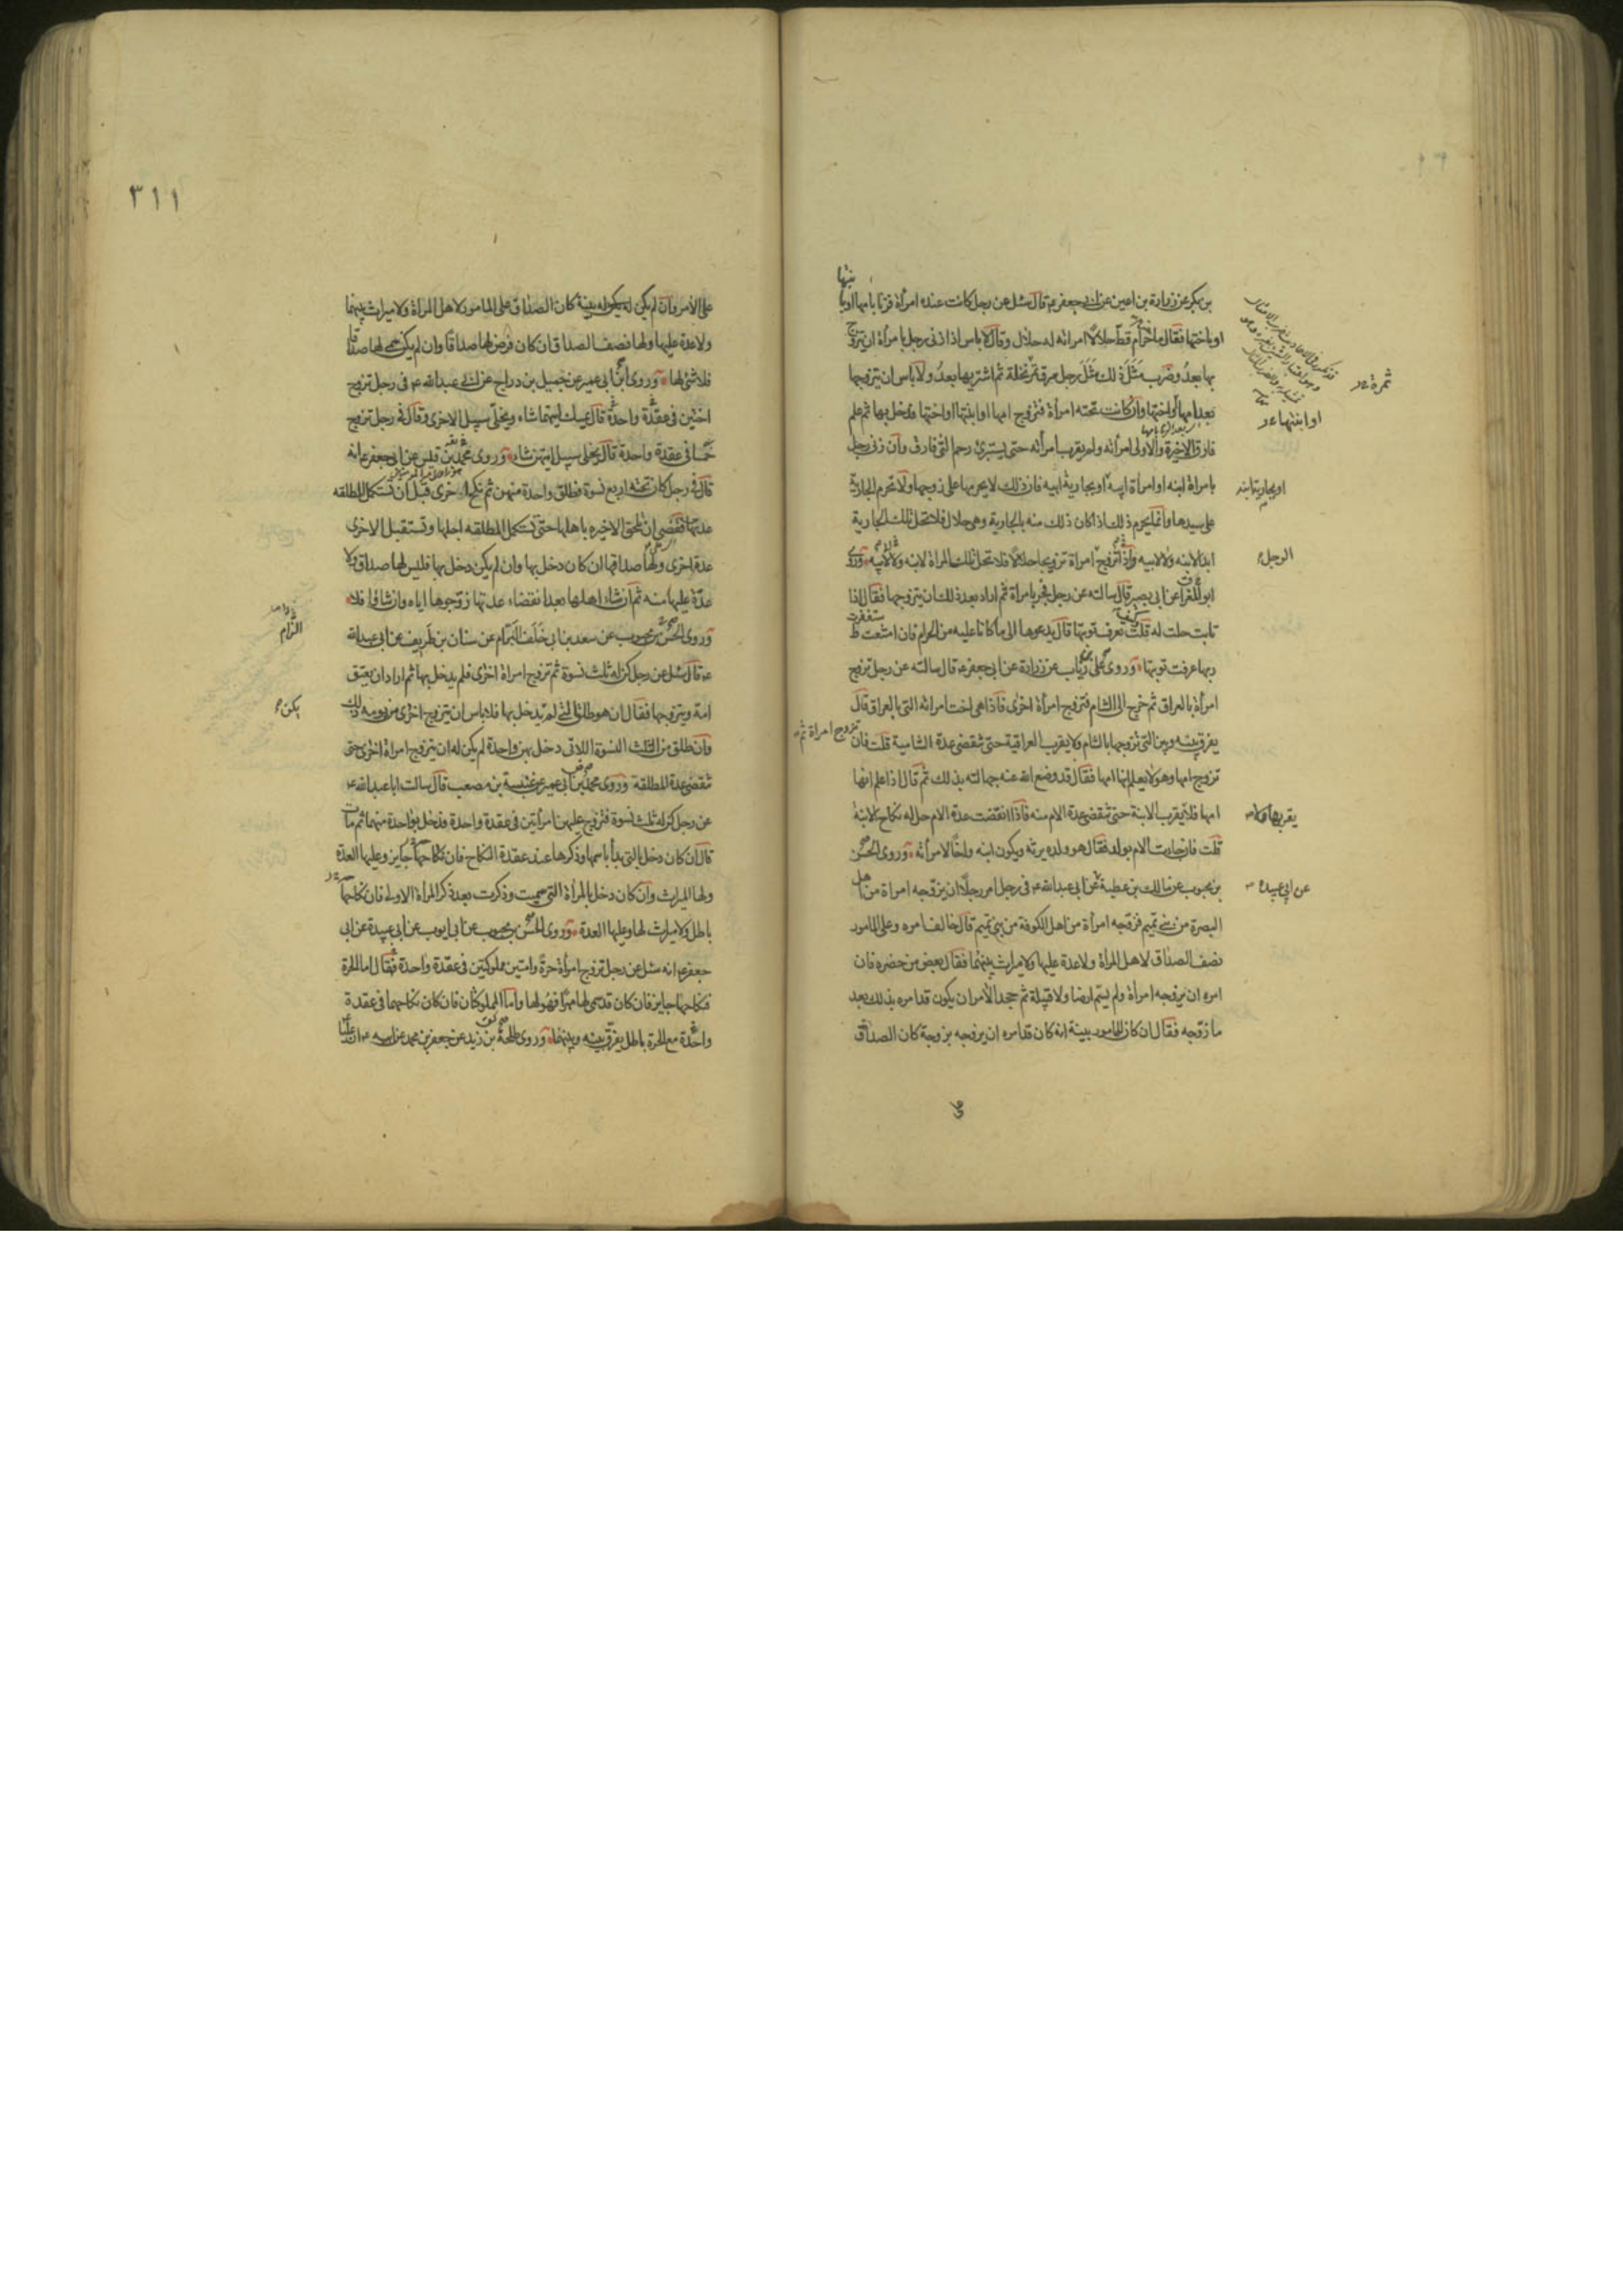 بن بكير عن زرارة بن اعين عن ابى جعفر ع قال سئل عن رجل كانت عنده امرأة فزنا بامها او با
بنتها
او باختها فقال ما حرّم حرام قطّ حلالا امرأته له حلال وقال لا باس اذا زنى رجل بامرأة ان يتزوج
بها بعدُ وضرب مَثَلَ ذلك مَثَلَ رجل سرق تمر نخلة ثم اشتريها بعدُ ولا باس ان يتزوجها
بعد امها او اختها وان كانت تحته امرأة فتزوج امها او ابنتها او اختها فدخل بها ثم علم
فارق الاخيرة والاولى امرأته ولم يقرب امرأته حتى يستبرئ رحم التى فارق وان زنى رجل
بامراة ابنه او امراة ابيه او بجارية ابيه فان ذلك لا يحرمها على زوجها ولا تحرم الجارية
على سيدها وانما يحرم ذلك اذا كان ذلك منه بالجارية وهى حلال فلا تحل تلك الجارية
ابدا لابنه ولا لابيه واذا تزوج امراة تزويجا حلالا فلا تحل تلك المراة لابنه ولا لابيه وروى
ابو المغرا عن ابى بصير قال سالته عن رجل فجر بامراة ثم اراد بعد ذلك ان يتزوجها فقال اذا
تابت حلت له قلت كيف تعرف توبتها قال يدعوها الى ما كانا عليه من الحرام فان امتنعت
ستغفرت
ربها عرفت توبتها وروى على بن رئاب عن زرارة عن ابى جعفر ع قال سالته عن رجل تزوج
امرأة بالعراق ثم خرج الى الشام فتزوج امرأة اخرى فاذا هى اخت امرأته التى بالعراق قال
يفرق بينه وبين التى تزوجها بالشام ولا يقرب العراقية حتى تنقضى عدة الشامية قلت فان
تزوج امراة ثم
تزوج امها وهو لا يعلم انها امها فقال قد وضع الله عنه جهالته بذلك ثم قال اذا علم انها
امها فلا يقرب الابنة حتى تنقضى عدة الام منه فاذا انقضت عدة الام حل له نكاح الابنة
قلت فان جاءت الام بولد فقال هو ولده يرثه ويكون ابنه واخا لامرأته وروى الحسن
بن محبوب عن مالك بن عطية عن ابى عبد الله ع فى رجل امر رجلا ان يزوجه امراة من اهل
البصرة من بنى تميم فزوجه امرأة من اهل الكوفة من بنى تميم قال خالف امره وعلى المامور
نصف الصداق لاهل المراة ولا عدة عليها ولا ميراث بينهما فقال بعض من حضره فان
امره ان يزوجه امرأة ولم يسمّ ارضا ولا قبيلة ثم جحد الآمر ان يكون قد امره بذلك بعد
ما زوّجه فقال ان كان للمامور بينة انه كان قد امره ان يزوجه بزوجة كان الصداق
ثمرة
او ابنتها
او بجارية ابنه
الرجل
يقربها ولا
عن ابى عبيدة
٣١١
على الآمر وان لم يكن له بينة كان الصداق على المامور لاهل المراة ولا ميراث بينهما
ولا عدة عليها ولها نصف الصداق ان كان فرض لها صداقا وان لم يكن سمى لها صداقا
فلا شئ لها وروى ابن ابى عمير عن جميل بن دراج عن ابى عبد الله ع فى رجل تزوج
اختين فى عقدة واحدة قال يمسك ايتهما شاء ويخلى سبيل الاخرى وقال فى رجل تزوج
خمسا فى عقدة واحدة قال يخلى سبيل ايتهن شاء وروى محمد بن قيس عن ابى جعفر ع انه
قال فى رجل كان تحته اربع نسوة فطلق واحدة منهن ثم نكح اخرى قبل ان تستكمل المطلقه
عدتها فقضى ان تلحق الاخيره باهلها حتى تستكمل المطلقه اجلها وتستقبل الاخرى
عدة اخرى ولها صداقها ان كان دخل بها وان لم يكن دخل بها فليس لها صداق ولا
عدّة عليها منه ثم ان شاء اهلها بعد انقضاء عدتها زوّجوها اياه وان شاؤا فلا
وروى الحسن بن محبوب عن سعد بن ابى خَلَف الزام عن سنان بن طريف عن ابى عبد الله
ع قال سئل عن رجل كن له ثلث نسوة ثم تزوج امراة اخرى فلم يدخل بها ثم اراد ان يعتق
امة ويتزوجها فقال ان هو طلق التى لم يدخل بها فلا باس ان يتزوج اخرى من يومه ذلك
وان طلق من الثلث النسوة اللاتى دخل بهن واحدة لم يكن له ان يتزوج امراة اخرى حتى
تنقضى عدة المطلقة وروى محمد بن ابى عمير عن عنبسة بن مصعب قال سالت ابا عبد الله ع
عن رجل كن له ثلث نسوة فتزوج عليهن امرأتين فى عقدة واحدة فدخل بواحدة منهما ثم مات
قال ان كان دخل بالتى بدأ باسمها وذكرها عند عقدة النكاح فان نكاحها جايز وعليها العدّة
ولها الميراث وان كان دخل بالمراة التى سميت وذكرت بعد ذكر المرأة الاولى فان نكاحها
باطل ولا ميراث لها وعليها العدة وروى الحسن بن محبوب عن ابى ايوب عن ابى عبيدة عن ابى
جعفر ع انه سئل عن رجل تزوج امرأة حرة وامتين مملوكتين فى عقدة واحدة فقال اما الحرة
فنكاحها جايز فان كان قد سمى لها مهرا فهو لها واما المملوكتان فان كان نكاحهما فى عقدة
واحدة مع الحرة باطل يفرق بينه وبينهما وروى طلحة بن زيد عن جعفر بن محمد عن ابيه ع ان عليا
الزام
يكن